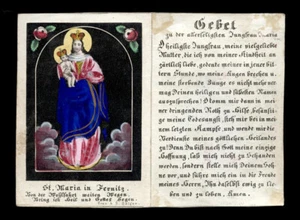 St. Maria in Fernitz.
Von der Wallfahrt meinen Wagen
Bring ich Heil und Gottes Segen.
Gebet
zu der allerseligsten Jungfrau Maria
O heiligste Jungfrau, meine vielgeliebte
Mutter, die ich von meiner Kindheit an
zärtlich liebe, gedenke meiner in jener bit-
tern Stunde, wo meine Augen brechen u
meine sterbende Zunge es nicht mehr ver-
mag Deinen heiligen und süßesten Namen
auszusprechen! Komm mir dann in mei-
ner letzten Noth zu Hilfe, besänfti-
ge meine Todesangst, steh mir bei in mei-
nem letzten Kampf und wende mir die
Verdienste meines göttlichen Heilandes
zu! Denn Dich baut nach Gott meine einzige
Hoffnung, laß mich nicht zu Schanden
werden, sondern stelle mich Deinem Soh-
ne vor, und führe mich ein in die Freude
meines Herrn, Ihn daselbst ewig zu lie-
ben und zu loben. Amen.